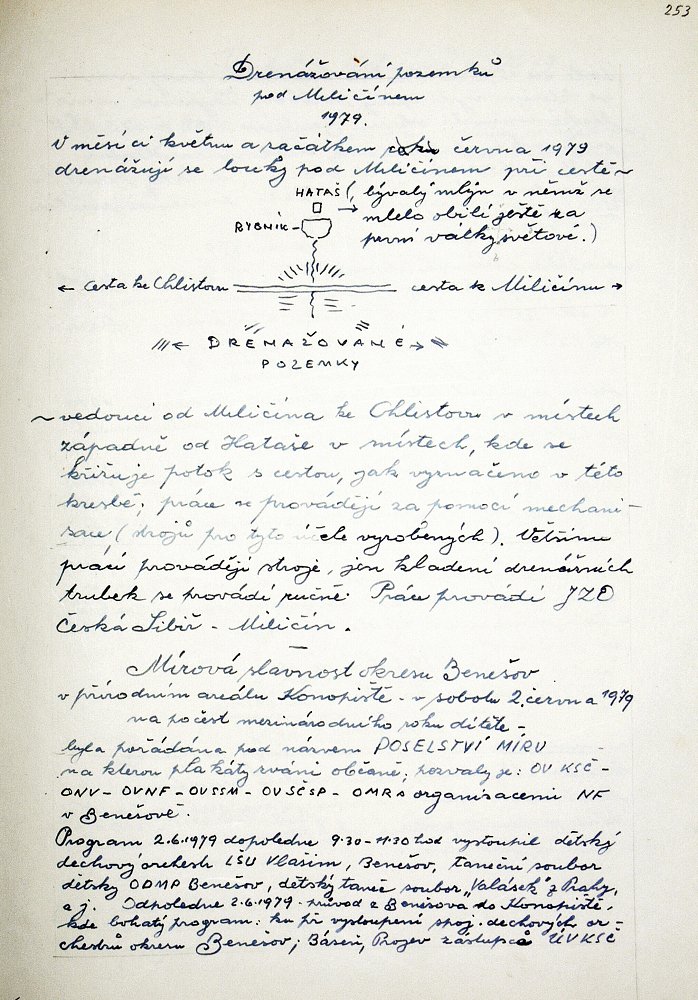 253
Drenážování pozemků
pod Miličínem
1979.
V měsíci květnu a začátkem roku června 1979
drenážují se louky pod Miličínem při cestě~
HATAŠ (bývalý mlýn v němž se
mlelo obilí ještě za
první války světové.)
RYBNÍK-
← cesta ke Chlistovu
cesta k Miličínu →
DRENAŽOVANÉ
POZEMKY
~vedoucí od Miličína ke Chlistovu v místech
západně od Hataše v místech, kde se
křižuje potok s cestou, jak vyznačeno v této
kresbě; práce se provádějí za pomocí mechani-
sace (strojů pro tyto účele vyrobených). Většinu
prácí provádějí stroje, jen kladení drenážních
trubek se provádí ručně. Práce provádí JZD
Česká Sibiř - Miličín.
Mírová slavnost okresu Benešov
v přírodním areálu Konopiště - v sobotu 2. června 1979
na počest mezinárodního roku dítěte -
byla pořádána pod názvem POSELSTVÍ MÍRU
na kterou plakáty zváni občané, pozvaly je: OV KSČ-
ONV- OVNF - OVSSM - OVSČSP - OMRA organisacemi NF
v Benešově.
Program 2.6.1979 dopoledne 9.30-11.30 hod vystoupil dětský
dechový orchestr LŠU Vlašim, Benešov, taneční soubor
dětský ODMP Benešov, dětský taneč soubor "Valášek" z Prahy,
a j. Odpoledne 2.6.1979 průvod z Benešova do Konopiště,
kde bohatý program: ku př vystoupení spoj. dechových or-
chestrů okresu Benešov, Báseň, Projev zástupce ÚV KSČ